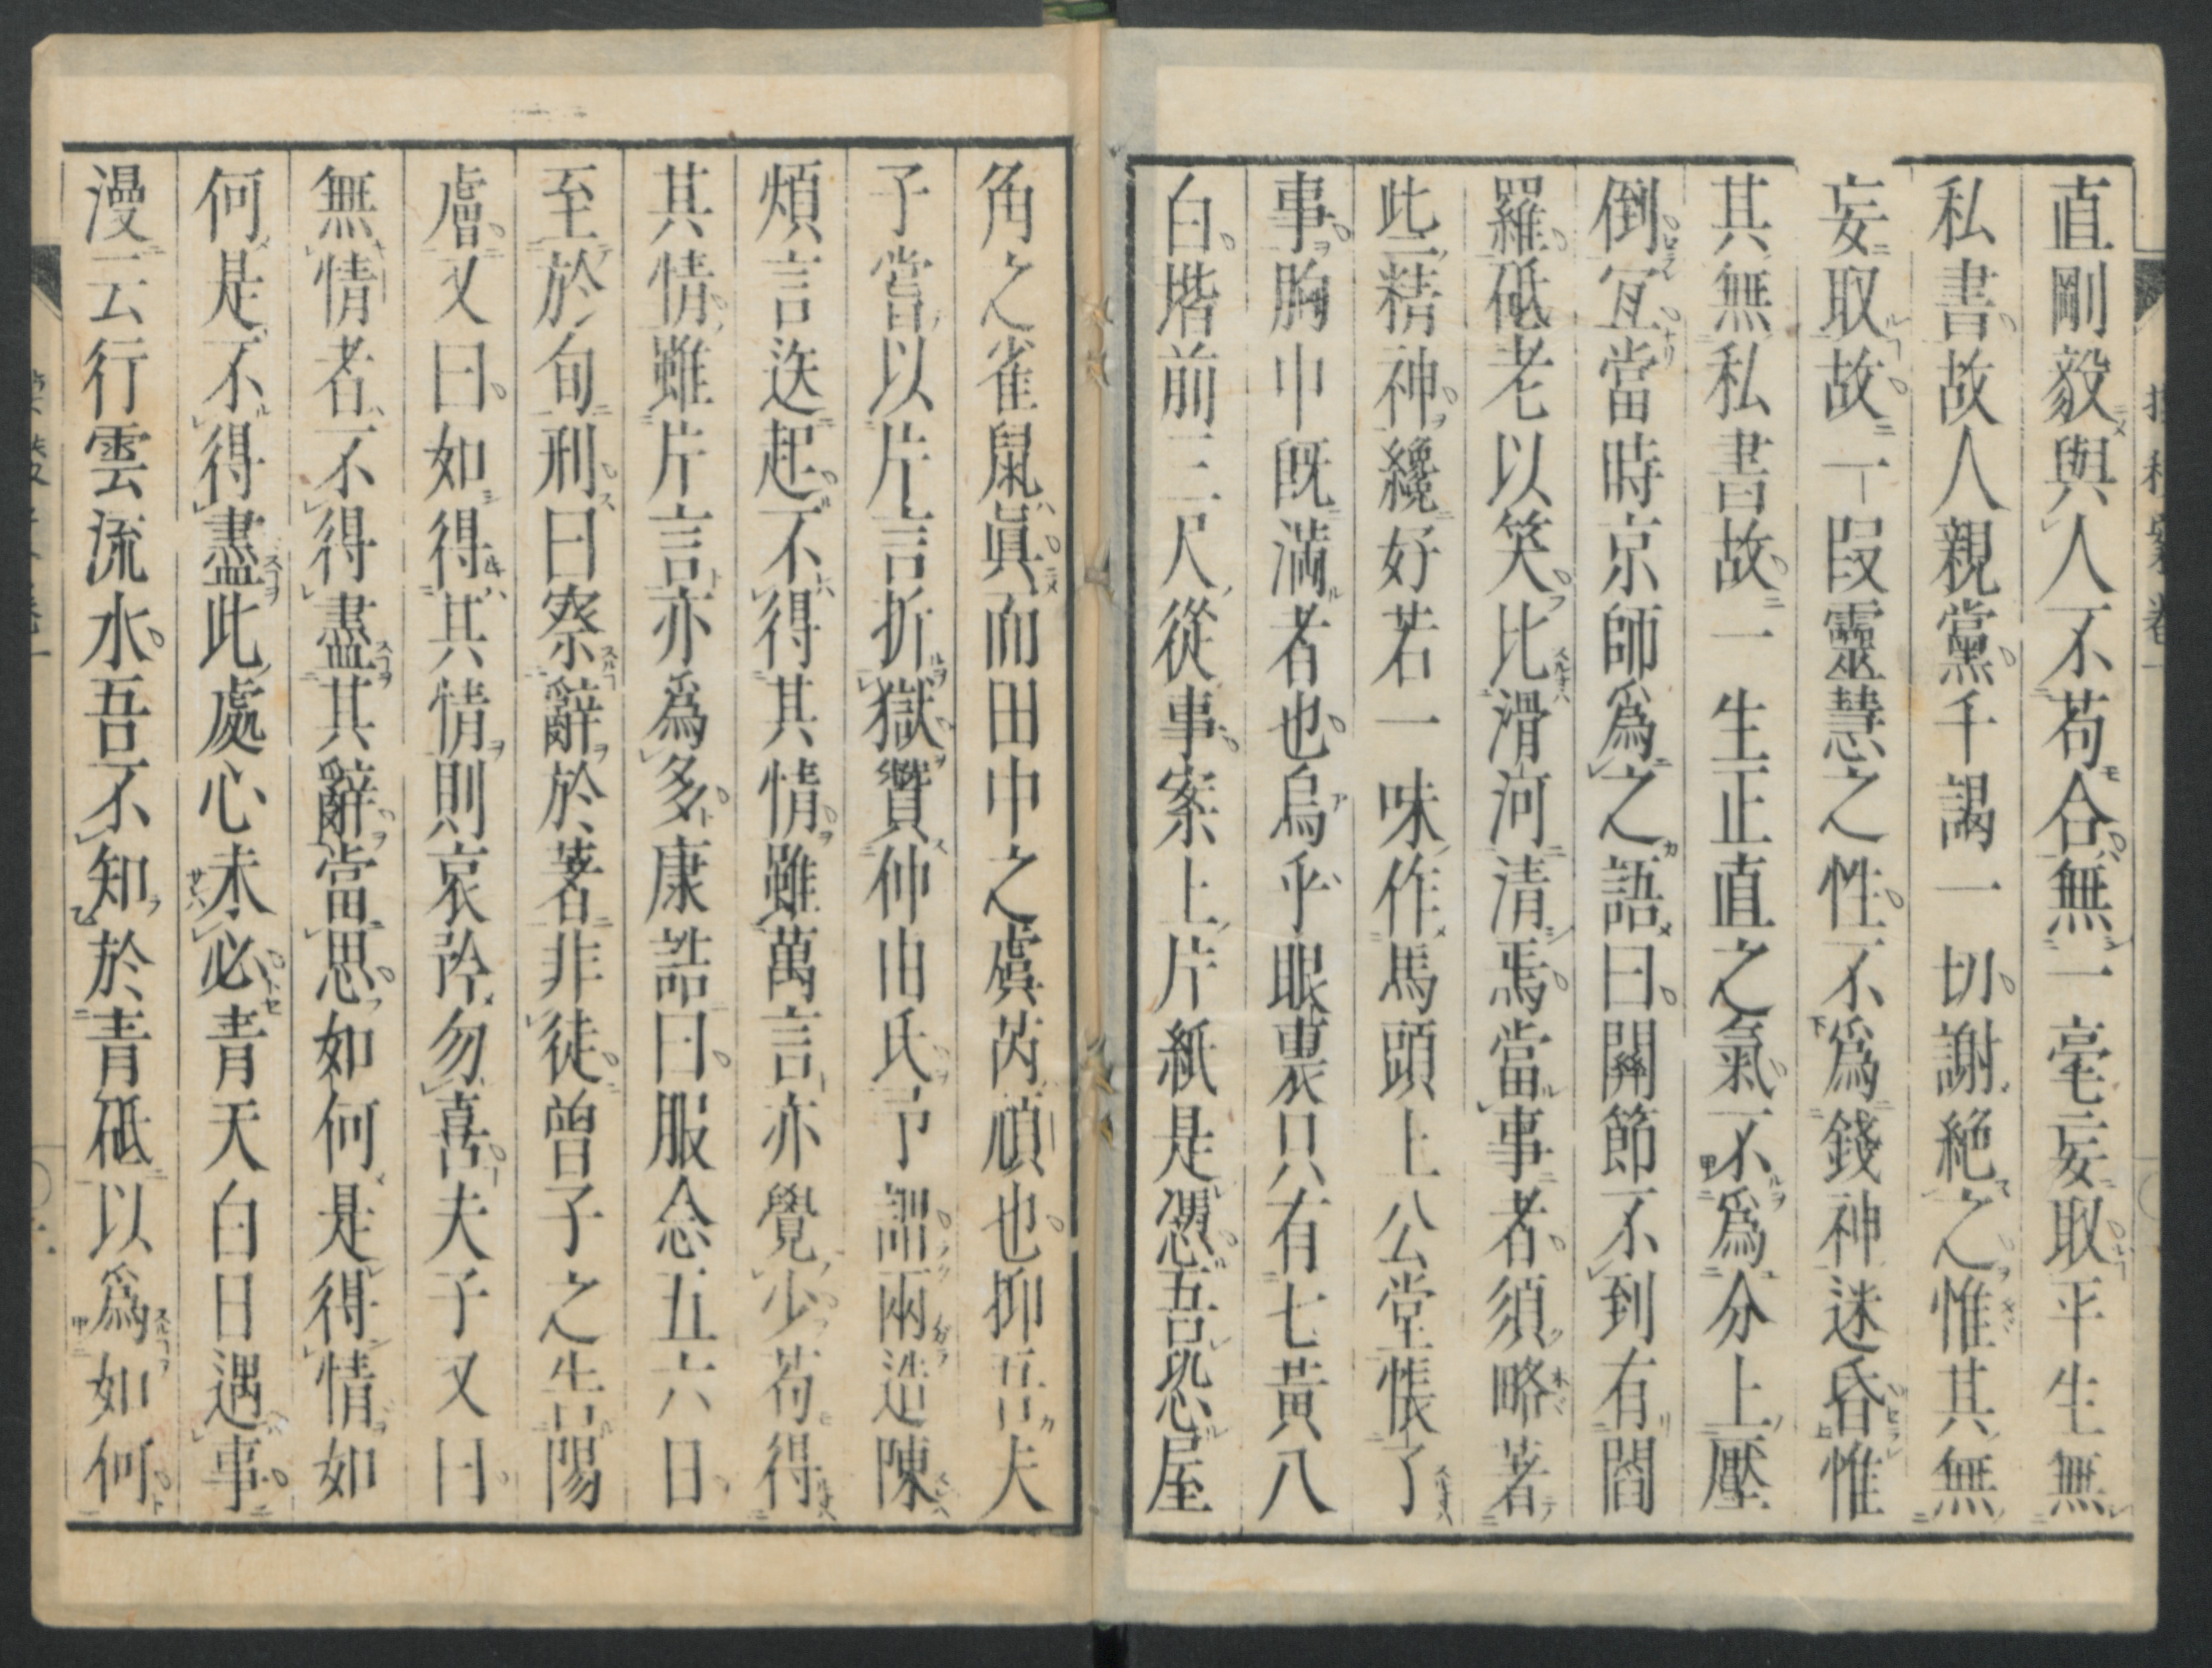 直剛毅與人不苟合無一毫妄取平生無
私書故人親黨千謁一切謝絶之惟其無
妄取故一段靈慧之性不爲錢神迷昏惟
其無私書故一生正直之氣不爲分上壓
倒冝當時京師爲之語曰關節不到有閻
羅砥老以笑比滑河清焉當事者須略著
此二精神纔好若一味作馬頭上公堂悵了
事胸中既滿者也烏乎眼裏只有七黃八
白堦前三尺從事案上片紙是憑吾恐屋
角之雀鼠眞而田中之虞芮頑也抑吾夫
子嘗以片言折獄贊仲由氏予謂兩造陳
煩言迭起不得其情雖萬言亦覺少苟得
其情雖片言亦爲多康誥曰服念五六日
至於旬刑曰察辭於著非徒曾子之告陽
膚又曰如得其情則哀矜勿喜夫子又曰
無情者不得盡其辭當思如何是得情如
何是不得盡此處心未必青天白日遇事
漫云行雲流水吾不知於青砥以爲如何